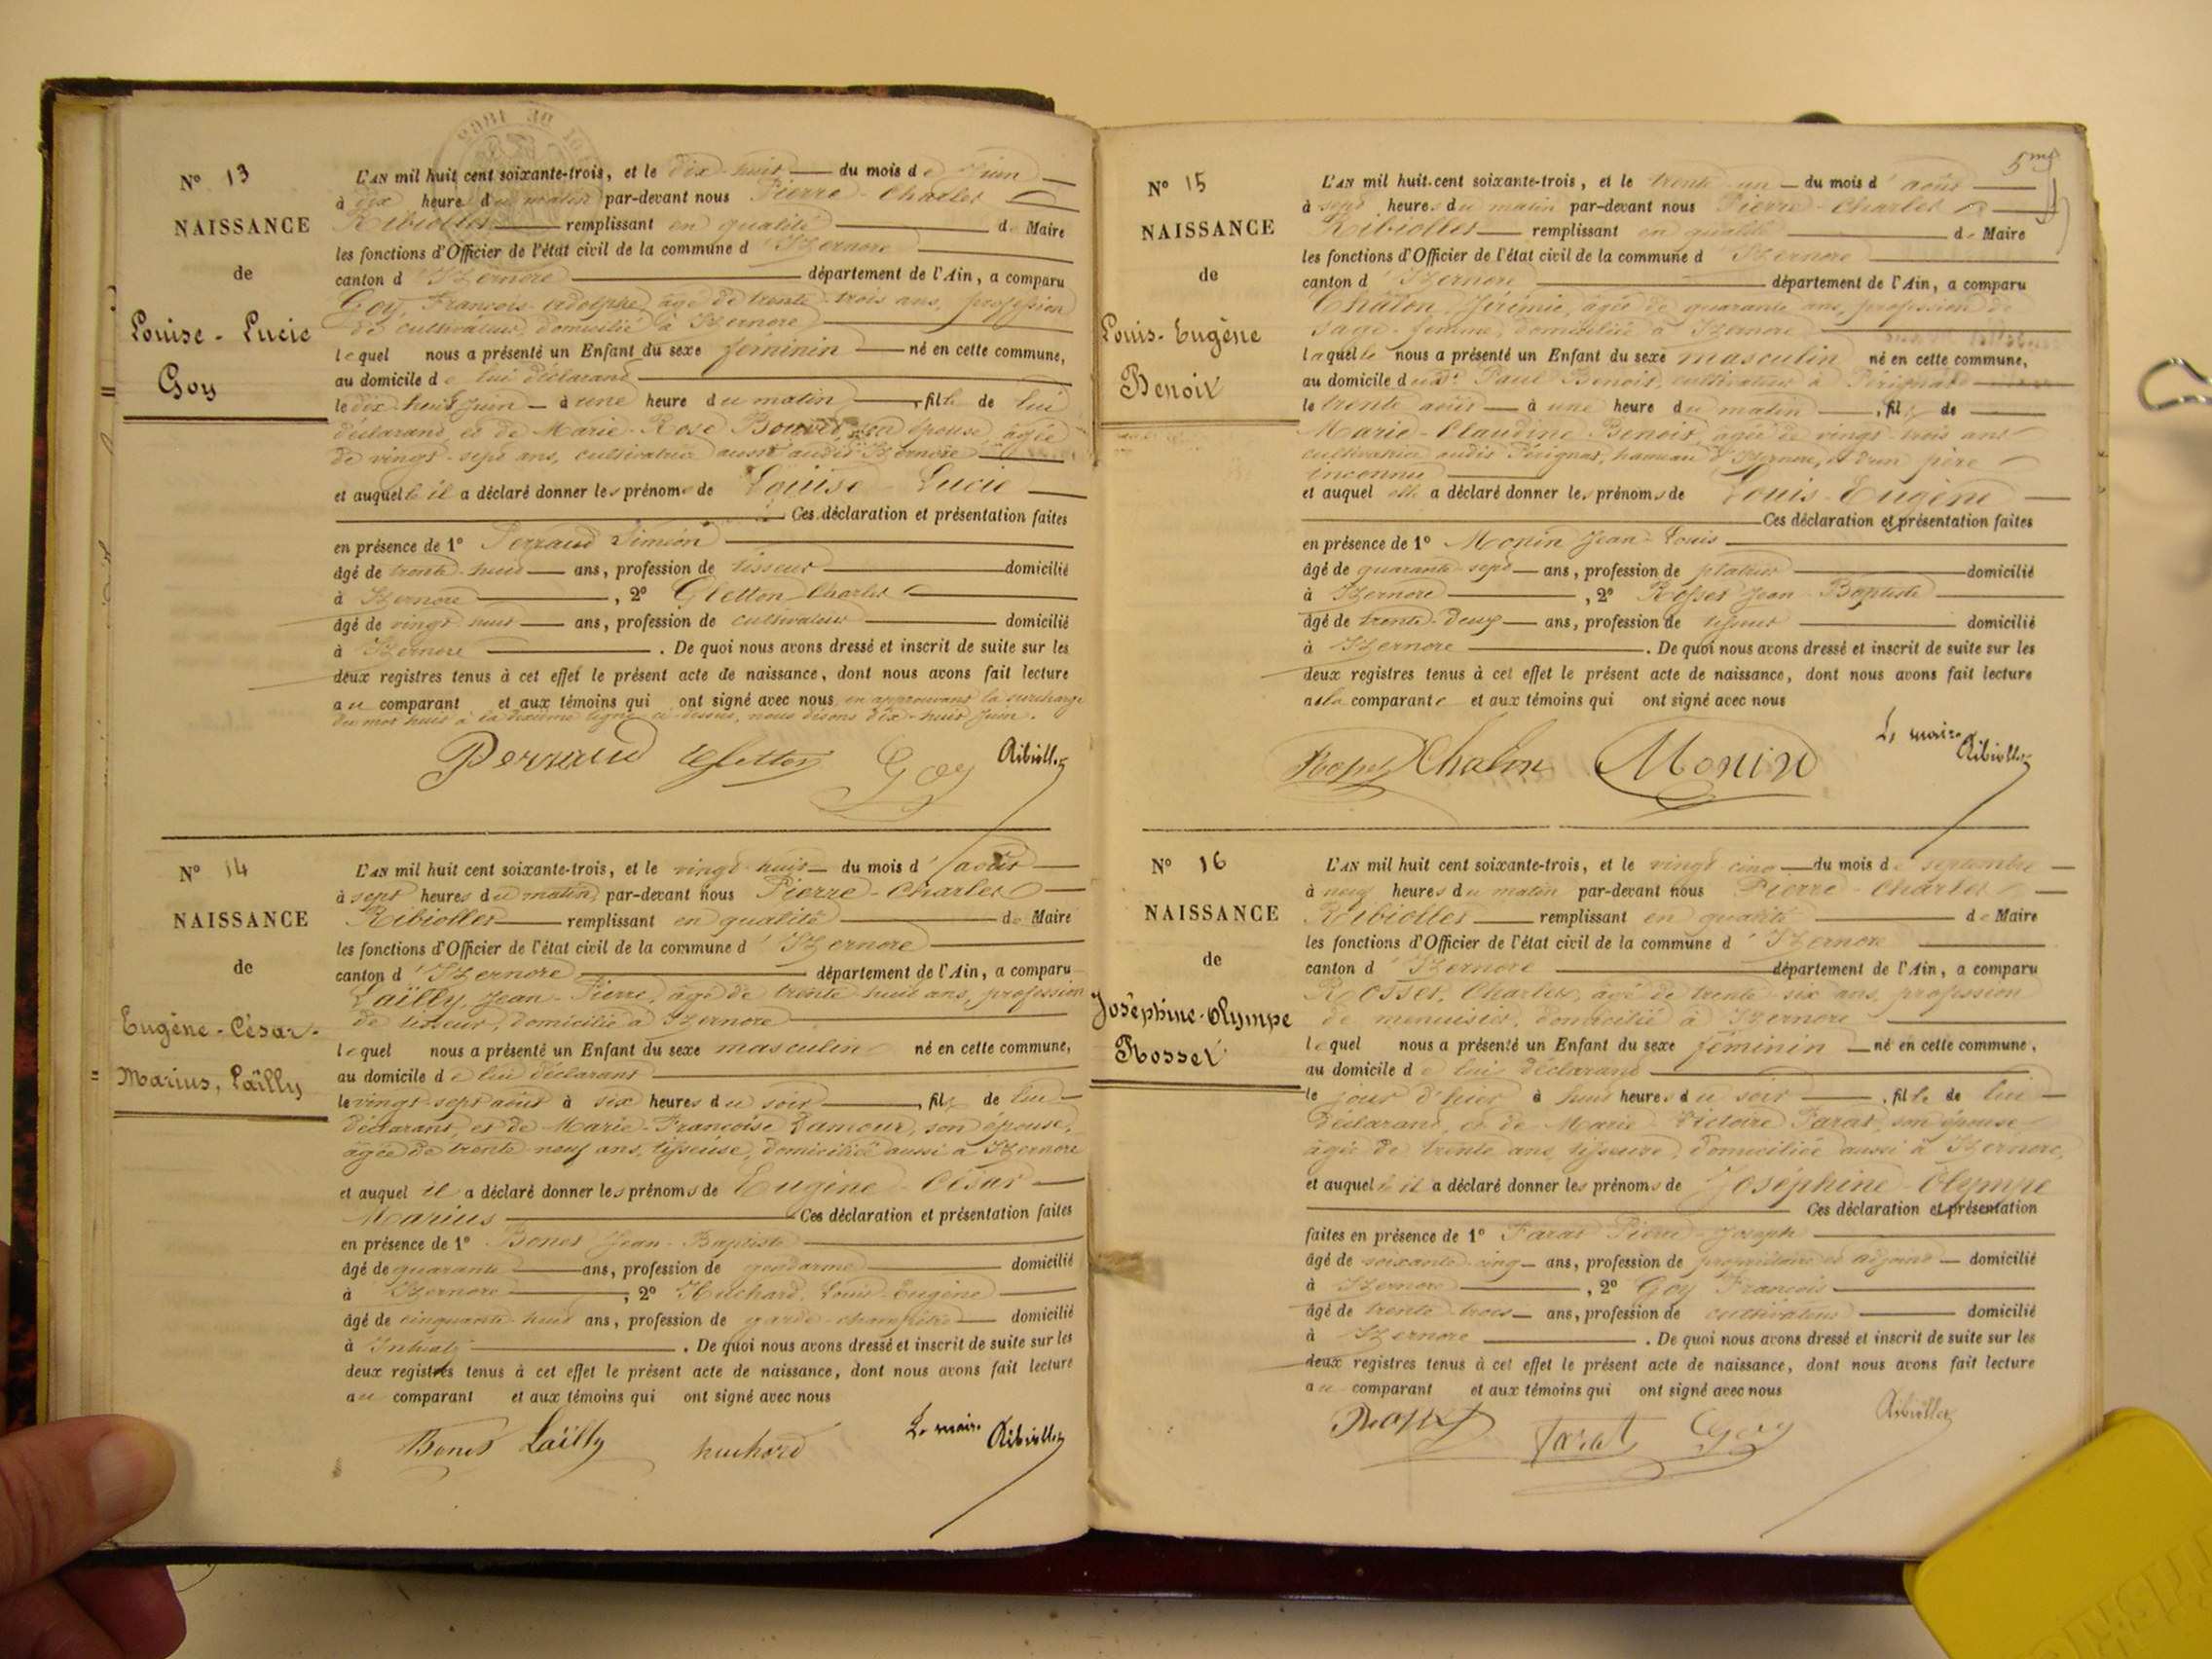 N° 13
NAISSANCE
de
Louise - Lucie
Goy
L'AN mil huit cent soixante-trois, et le dix-huit du mois de Juin
à dix heures du matin par-devant nous Pierre-Charles
Ribiollet remplissant en qualité de Maire
les fonctions d'Officier de l'état civil de la commune d'Izernore
canton d'Izernore département de l'Ain, a comparu
Goy, François-Adolphe, âgé de trente-trois ans, profession
de cultivateur, domicilié à Izernore
lequel nous a présenté un Enfant du sexe féminin né en cette commune,
au domicile de lui déclarant
le dix-huit Juin à une heure du matin, fille de lui
déclarant, et de Marie-Rose Bouvet, son épouse, âgée
de vingt-sept ans, cultivatrice aussi audit Izernore
et auquelle il a déclaré donner les prénoms de Louise Lucie
Ces déclaration et présentation faites
en présence de 1° Perraud Siméon
âgé de trente-huit ans, profession de tisseur domicilié
à Izernore, 2° Gletton Charles
âgé de vingt-huit ans, profession de cultivateur domicilié
à Izernore. De quoi nous avons dressé et inscrit de suite sur les
deux registres tenus à cet effet le présent acte de naissance, dont nous avons fait lecture
au comparant et aux témoins qui ont signé avec nous en approuvant la surcharge
du mot huit à la dixième ligne ci-dessus, nous disons dix-huit Juin.
Perraud Gletton Goy Ribiollet
N° 14
NAISSANCE
de
Eugène-César-
Marius, Laïlly
L'AN mil huit cent soixante-trois, et le vingt-huit du mois d'août
à sept heures du matin, par-devant nous Pierre-Charles
Ribiollet remplissant en qualité de Maire
les fonctions d'Officier de l'état civil de la commune d'Izernore
canton d'Izernore département de l'Ain, a comparu
Laïlly, Jean-Pierre, âgé de trente-huit ans, profession
de tisseur, domicilié à Izernore
lequel nous a présenté un Enfant du sexe masculin né en cette commune,
au domicile de lui déclarant
le vingt-sept août à six heures du soir, fils de lui
déclarant, et de Marie-Françoise Lamour, son épouse,
âgée de trente-neuf ans, tisseuse, domiciliée aussi à Izernore
et auquel il a déclaré donner les prénoms de Eugène-César
Marius Ces déclaration et présentation faites
en présence de 1° Bonet Jean-Baptiste
âgé de quarante ans, profession de gendarme domicilié
à Izernore, 2° Huchard, Louis-Eugène
âgé de cinquante-huit ans, profession de garde-champêtre domicilié
à Intriat. De quoi nous avons dressé et inscrit de suite sur les
deux registres tenus à cet effet le présent acte de naissance, dont nous avons fait lecture
au comparant et aux témoins qui ont signé avec nous
Bonet Laïlly huchard Le maire Ribiollet
5me
N° 15
NAISSANCE
de
Louis-Eugène
Benoit
L'AN mil huit cent soixante-trois, et le trente-un du mois d'août
à sept heures du matin par-devant nous Pierre-Charles
Ribiollet remplissant en qualité de Maire
les fonctions d'Officier de l'état civil de la commune d'Izernore
canton d'Izernore département de l'Ain, a comparu
Châlon, Jérémie, âgée de quarante ans, profession de
sage-femme, domiciliée à Izernore
laquelle nous a présenté un Enfant du sexe masculin né en cette commune,
au domicile du Sr Paul Benoit, cultivateur à Pérignat
le trente août à une heure du matin, fils de
Marie-Claudine Benoit, âgée de vingt-trois ans
cultivatrice audit Pérignat, hameau d'Izernore, et d'un père
inconnu
et auquel elle a déclaré donner les prénoms de Louis-Eugène
Ces déclaration et présentation faites
en présence de 1° Monin Jean-Louis
âgé de quarante-sept ans, profession de platrier domicilié
à Izernore, 2° Rosset Jean-Baptiste
âgé de trente-deux ans, profession de tisseur domicilié
à Izernore. De quoi nous avons dressé et inscrit de suite sur les
deux registres tenus à cet effet le présent acte de naissance, dont nous avons fait lecture
à la comparante et aux témoins qui ont signé avec nous
Rosset Chalon Monin Le maire Ribiollet
N° 16
NAISSANCE
de
Joséphine-Olympe
Rosset
L'AN mil huit cent soixante-trois, et le vingt-cinq du mois de septembre
à neuf heures du matin par-devant nous Pierre-Charles
Ribiollet remplissant en qualité de Maire
les fonctions d'Officier de l'état civil de la commune d'Izernore
canton d'Izernore département de l'Ain, a comparu
Rosset, Charles, âgé de trente-six ans, profession
de menuisier, domicilié à Izernore
lequel nous a présenté un Enfant du sexe féminin né en cette commune,
au domicile de lui déclarant
le jour d'hier à huit heures du soir, fille de lui
déclarant, et de Marie Victoire Farat, son épouse
âgée de trente ans, tisseuse, domiciliée aussi à Izernore,
et auquelle il a déclaré donner les prénoms de Joséphine-Olympe
Ces déclaration et présentation
faites en présence de 1° Farat Pierre-Joseph
âgé de soixante-cinq ans, profession de propriétaire et adjoint domicilié
à Izernore, 2° Goy François
âgé de trente-trois ans, profession de cultivateur domicilié
à Izernore. De quoi nous avons dressé et inscrit de suite sur les
deux registres tenus à cet effet le présent acte de naissance, dont nous avons fait lecture
au comparant et aux témoins qui ont signé avec nous
Rosset Farat Goy Ribiollet